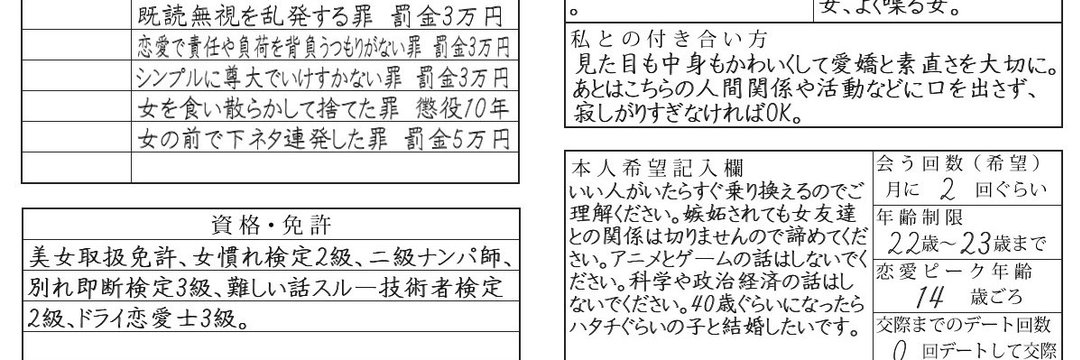 既読無視を乱発する罪 罰金3万円
恋愛で責任や負荷を背負うつもりがない罪 罰金3万円
シンプルに尊大でいけすかない罪 罰金3万円
女を食い散らかして捨てた罪 懲役10年
女の前で下ネタ連発した罪 罰金5万円
資格・免許
美女取扱免許、女慣れ検定2級、二級ナンパ師、
別れ即断検定3級、難しい話スルー技術者検定
2級、ドライ恋愛士3級。
。
女、よく喋る女。
私との付き合い方
見た目も中身もかわいくして愛嬌と素直さを大切に。
あとはこちらの人間関係や活動などに口を出さず、
寂しがりすぎなければOK。
本人希望記入欄
いい人がいたらすぐ乗り換えるのでご
理解ください。嫉妬されても女友達
との関係は切りませんので諦めてくだ
さい。アニメとゲームの話はしないでく
ださい。科学や政治経済の話はし
ないでください。40歳ぐらいになったら
ハタチぐらいの子と結婚したいです。
会う回数(希望)
月に 2 回ぐらい
年齢制限
22歳～23歳まで
恋愛ピーク年齢
14 歳ごろ
交際までのデート回数
0 回デートして交際